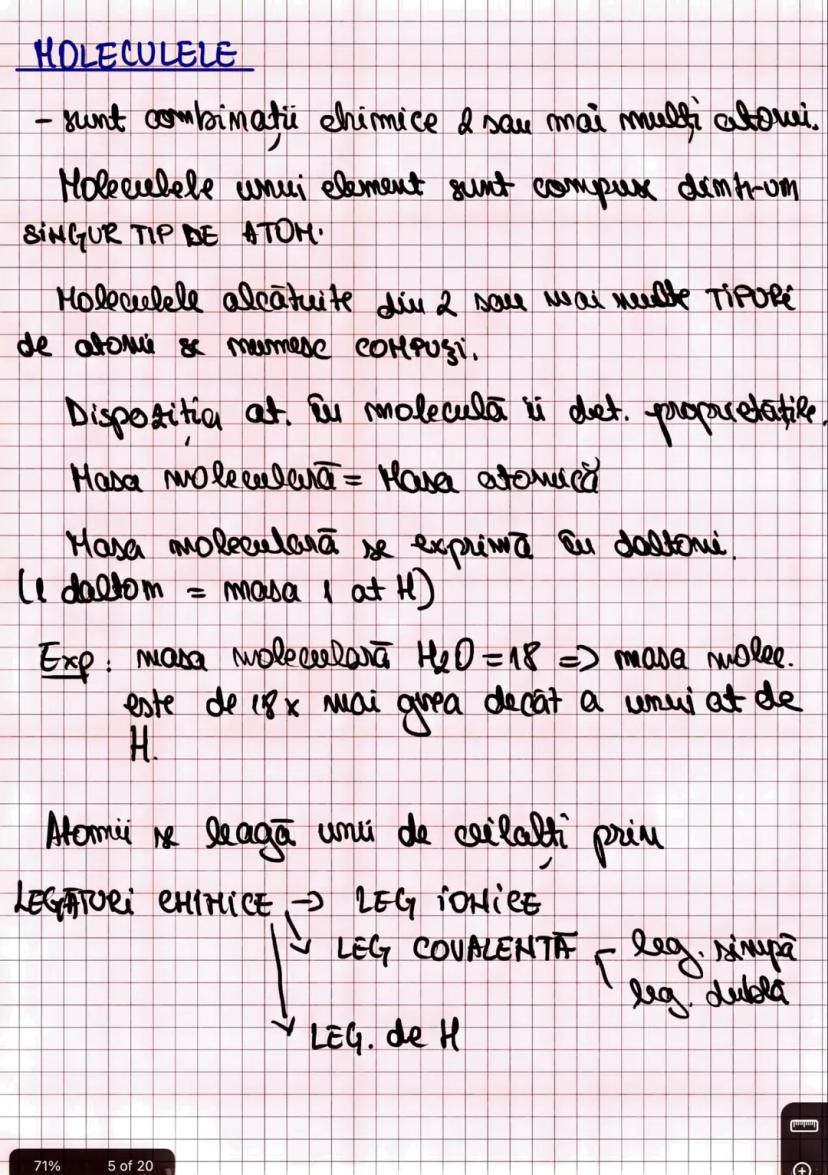 MOLECULELE
- sunt combinații chimice 2 sau mai mulți atomi.
Moleculele unui element sunt compuse dintr-un
SINGUR TIP DE ATOM.
Moleculele alcătuite din 2 sau mai multe TIPURI
de atomi se numesc COMPUȘI.
Dispoziția at. în moleculă îi det. proprietățile.
Masa moleculară = Masa atomică
Masa moleculară se exprimă în daltoni.
(1 dalton = masa 1 at H)
Exp: masa moleculară H2O = 18 => masa molec.
este de 18x mai grea decât a unui at de
H.
Atomii se leagă unii de ceilalți prin
LEGĂTURI CHIMICE → LEG IONICE
↘ LEG COVALENTĂ - leg. simpă
leg. dublă
↓ LEG. de H
71% 5 of 20